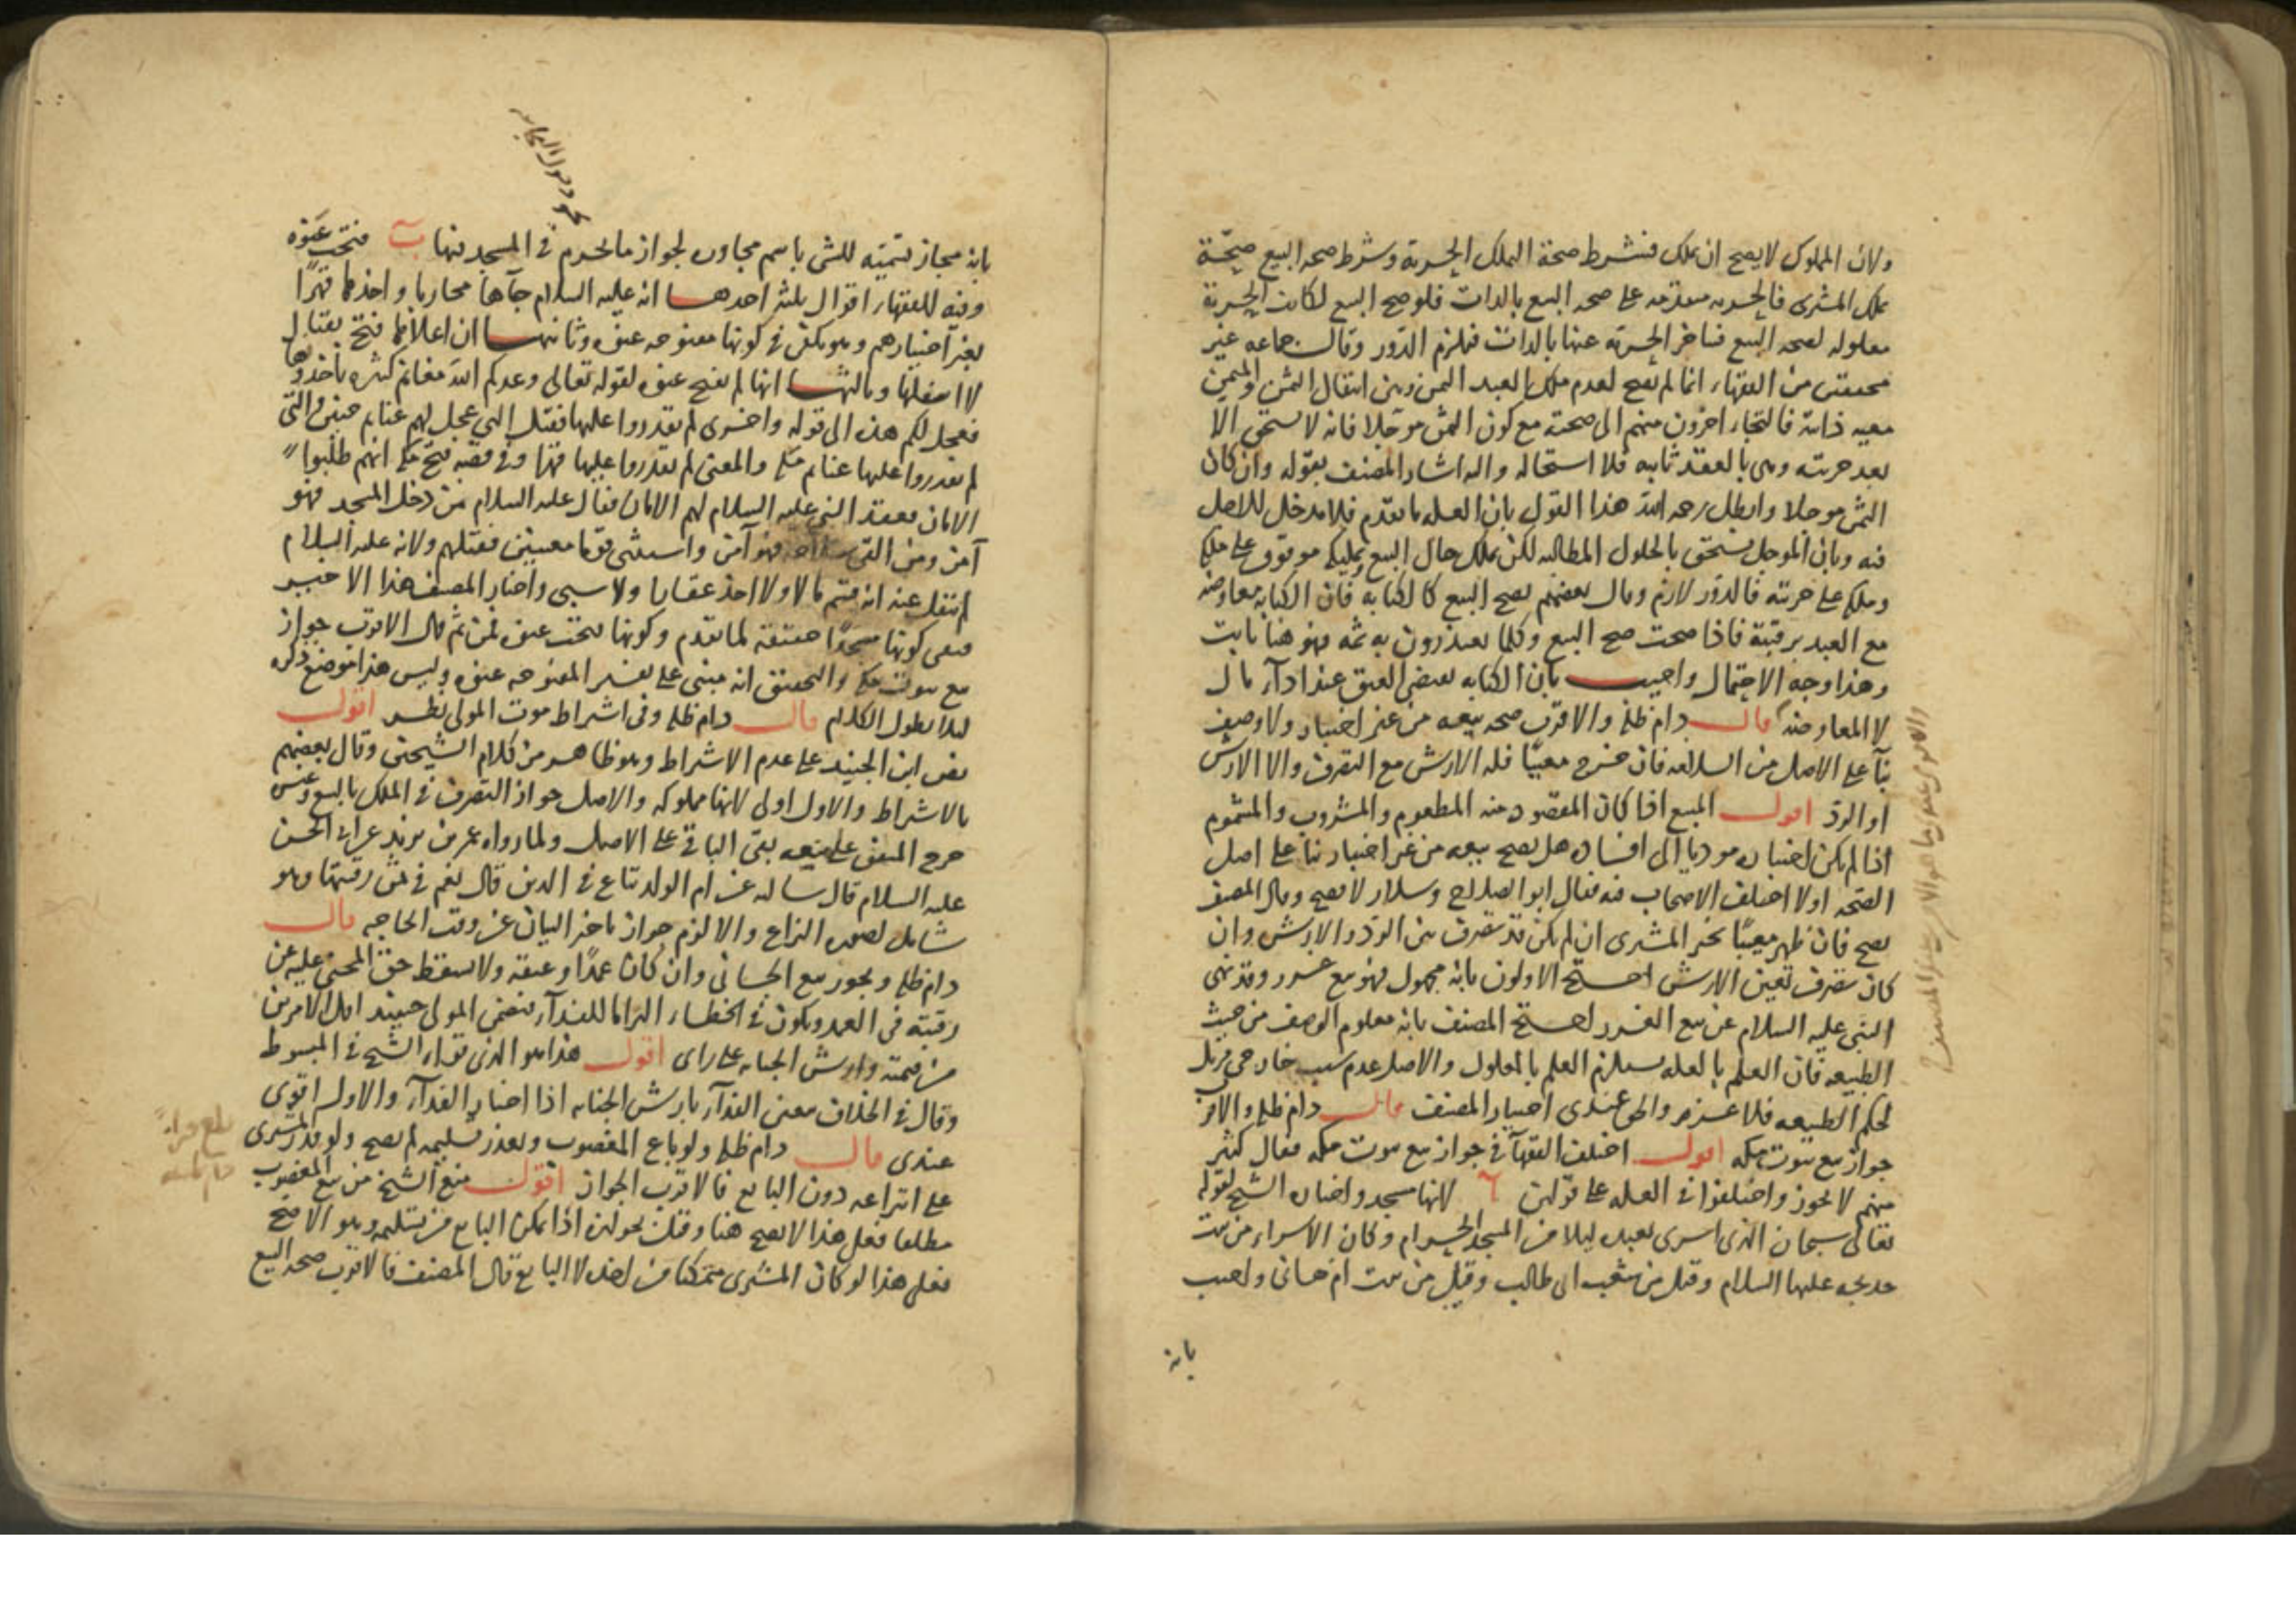 ولان المملوك لا يصح ان يملك فيشترط صحة التملك الحرية وشرط صحة البيع صحة
ملك المشترى فالحرية متقدمة على صحة البيع بالذات فلو صح البيع لكانت الحرية
معلولة لصحة البيع فتأخر الحرية عنها بالذات فيلزم الدور وقال جماعة غير
محققين من الفقهاء انما لم يصح لعدم ملك العبد الثمن وبين انتقال الثمن والمثمن
معية ذاتية فالتجاء اخرون منهم الى صحته مع كون الثمن موجلا فانه لا يستحق الا
بعد حريته وهى بالعقد ثابتة فلا استحالة واليه اشار المصنف بقوله وان كان
الثمن موجلا وابطل رحمه الله هذا القول بان العلة ما تقدم فلا مدخل للاجل
فيه وبان الموجل يستحق بالحلول المطالبة لكن يملك حال البيع وتمليكه موقوف على ملكه
وملكه على حريته فالدور لازم وقال بعضهم يصح البيع كالكتابة فان الكتابة معاوضة
مع العبد برقبته فاذا صحت صح البيع وكلما يعتذرون به ثمه فهو هنا ثابت
وهذا وجه الاحتمال واجيب بان الكتابة تقتضى العتق عند ادآء مال
لا المعاوضة قال دام ظله والاقرب صحة بيعه من غير اختبار ولا وصف
بنآ على الاصل من السلامة فان خرج معيبًا فله الارش مع التصرف والا الارش
او الرد اقول المبيع اذا كان المقصود منه المطعوم والمشروب والمشموم
اذا لم يكن اختباره موديا الى افساده هل يصح بيعه من غير اختبار بناء على اصل
الصحة او لا اختلف الاصحاب فيه فقال ابو الصلاح وسلار لا يصح وقال المصنف
يصح فان ظهر معيبًا تخير المشترى ان لم يكن قد تصرف بين الرد والارش وان
كان تصرف تعين الارش احتج الاولون بانه مجهول فهو بيع غرر وقد نهى
النبى عليه السلام عن بيع الغرر احتج المصنف بانه معلوم الوصف من حيث
الطبيعة فان العلم بالعلة يستلزم العلم بالمعلول والاصل عدم سبب خارجى مزيل
لحكم الطبيعة فلا غرر والحق عندى اختيار المصنف قال دام ظله والاقرب
جواز بيع بيوت مكه اقول اختلف الفقهآ فى جواز بيع بيوت مكه فقال كثير
منهم لا يجوز واختلفوا فى العلة على قولين آ لانها مسجد واختاره الشيخ لقوله
تعالى سبحان الذى اسرى بعبده ليلا من المسجد الحرام وكان الاسراء من بيت
خديجه عليها السلام وقيل من شعب ابى طالب وقيل من بيت ام هانى واجيب
بانه
بانه مجاز تسمية للشى باسم مجاوره لجواز ما يحرم فى المسجد فيها ب فتحت عنوة
وفيه للفقهاء اقوال ثلثة احدها انه عليه السلام جآها محاربا واخذها قهرًا
بغير اختيارهم وهو يكفى فى كونها مفتوحة عنوة وثانيها ان اعلاها فتح بقتال
لا اسفلها وثالثها انها لم تفتح عنوة لقوله تعالى وعدكم الله مغانم كثيرة تأخذونها
فعجل لكم هذه الى قوله واخرى لم تقدروا عليها فقيل التى عجل لهم غنائم حنين والتى
لم تقدروا عليها غنائم مكة والمعنى لم تقدروا عليها قهرًا وفى قصة فتح مكة انهم طلبوا
الامان فعقد النبى عليه السلام لهم الامان فقال عليه السلام من دخل المسجد فهو
آمن ومن القى سلاحه فهو آمن واستثنى قوما معينين فقتلهم ولانه عليه السلام
لم ينقل عنه انه قسم مالا ولا اخذ عقارا ولا سبى واختار المصنف هذا الاخير
فنفى كونها مسجدًا حقيقة لما تقدم وكونها فتحت عنوة فمن ثم قال الاقرب جواز
بيع بيوت مكة والتحقيق انه مبنى على تفسير المفتوحة عنوة وليس هذا موضع ذكره
لئلا يطول الكلام قال دام ظله وفى اشتراط موت المولى نظر اقول
نص ابن الجنيد على عدم الاشتراط وهو ظاهر من كلام الشيخين وقال بعضهم
بالاشتراط والاول اولى لانها مملوكه والاصل جواز التصرف فى الملك بالبيع وغيره
خرج المتفق على منعه بقى الباقى على الاصل ولما رواه عمر بن يزيد عن ابى الحسن
عليه السلام قال سألته عن ام الولد تباع فى الدين قال نعم فى ثمن رقبتها وهو
شامل لصورة النزاع والا لزم جواز تاخير البيان عن وقت الحاجه قال
دام ظله ويجوز بيع الجانى وان كان عمدًا وعتقه ولا يسقط حق المجنى عليه عن
رقبته فى العمد ويكون فى الخطاء التزاما للفدآء فيضمن المولى حينئذ اقل الامرين
من قيمته وارش الجناية على راى اقول هذا هو الذى قواه الشيخ فى المبسوط
وقال فى الخلاف معنى الفدآء بارش الجناية اذا اختار الفدآء والاول اقوى
عندى قال دام ظله ولو باع المغصوب وتعذر تسليمه لم يصح ولو قدر المشترى
على انتزاعه دون البايع فالاقرب الجواز اقول منع الشيخ من بيع المغصوب
مطلقا فعلى هذا لا يصح هنا وقيل بجوازه اذا تمكن البايع من تسليمه وهو الاصح
فعلى هذا لو كان المشترى متمكنا من اخذه لا البايع قال المصنف فالاقرب صحة البيع